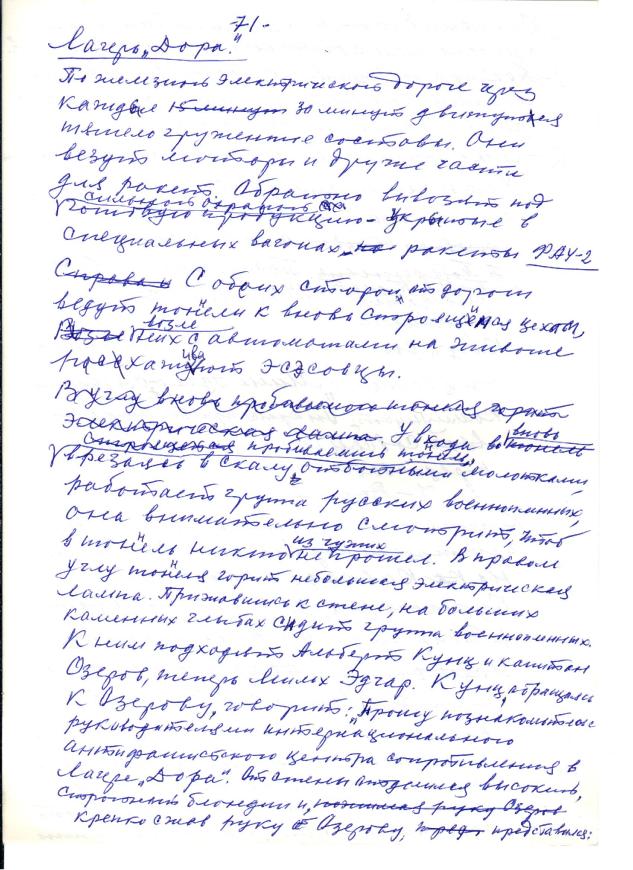 71.
Лагерь „Дора."
По железной электрической дороге через
каждые 15 минут 30 минут движутся
тяжело груженные составы. Они
везут моторы и другие части
для ракет. Обратно вывозят под
сильной охраной
готовую продукцию - укрытые в
специальных вагонах, на ракеты ФАУ-2
Справа и С обоих сторон от дороги
ведут тоннели к вновь строящимся цехам,
возле
Возле них с автоматами на животе
расхаживают эсэсовцы.
В углу вновь пробиваемого тоннеля горит
электрическая лампа. У входа во вновь
строющейся пробиваемый тоннель,
врезаясь в скалу отбойными молотками
работает группа русских военнопленных,
она внимательно смотрит, чтоб
из чужих
в тоннель никто не прошел. В правом
углу тоннеля горит небольшая электрическая
лампа. Прижавшись к стене, на больших
каменных глыбах сидит группа военнопленных.
К ним подходят Альберт Кунц и капитан
Озеров, теперь Милых Эдгар. Кунц, обращаясь
к Озерову, говорит: „Прошу познакомиться с
руководителями интернационального
антифашистского центра сопротивления в
лагере „Дора". От стены отделился высокий,
блондин и, пожимая руку Озеров
крепко сжав руку Озерову, пред представился: